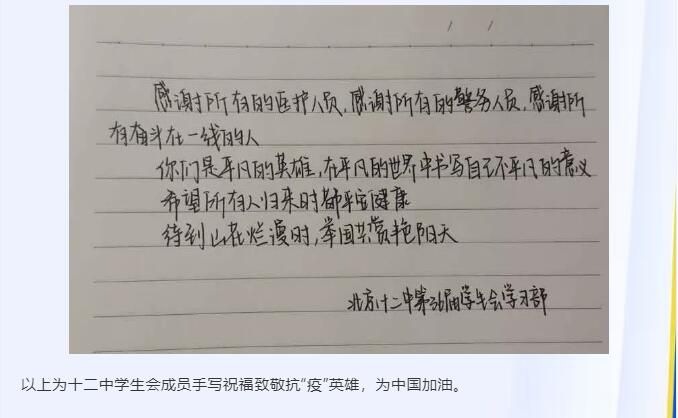 感谢所有的医护人员,感谢所有的警务人员,感谢所
有奋斗在一线的人
你们是平凡的英雄,在平凡的世界中书写自己不平凡的意义
希望所有人归来时都平安健康
待到山花烂漫时,举国共赏艳阳天
北京十二中第36届学生会学习部
以上为十二中学生会成员手写祝福致敬抗“疫”英雄，为中国加油。